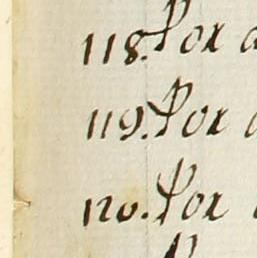 118. Por a
119. Por a
120. Por